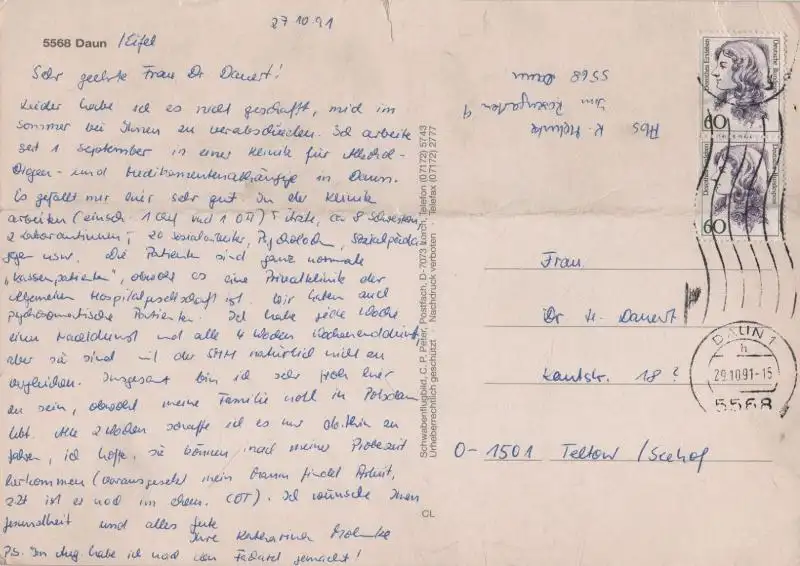 27.10.91
5568 Daun /Eifel
Sehr geehrte Frau Dr Danert!
Leider habe ich es nicht geschafft, mich im
Sommer bei Ihnen zu verabschieden. Ich arbeite
seit 1 September in einer Klinik für Alkohol-
Drogen- und Medikamentenabhängige in Daun.
Es gefällt mir hier sehr gut in der Klinik
arbeiten (einschl. 1 Chef und 1 OA) 5 Ärzte, ca 8 Schwestern,
2 Laborantinnen, 20 Sozialarbeiter, Psycholog, Sozialpäda-
gogen usw. Die Patienten sind ganz normale
„Kassenpatienten", obwohl es eine Privatklinik der
Allgemeinen Hospitalgesellschaft ist. Wir haben auch
psychosomatische Patienten. Ich habe jede Woche
einen Nachtdienst und alle 4 Wochen Wochenenddienst,
aber sie sind mit der SMH natürlich nicht zu
vergleichen. Insgesamt bin ich sehr froh hier
zu sein, obwohl meine Familie noch in Potsdam
lebt. Alle 2 Wochen schaffe ich es nur dorthin zu
fahren, ich hoffe, sie können nach meiner Probezeit
herkommen (vorausgesetzt mein Mann findet Arbeit,
z.Zt ist er noch im ehem. ). Ich wünsche Ihnen
Gesundheit und alles Gute
Ihre Katharina
P.S. Im Aug. habe ich noch den Facharzt gemacht!
Schwabenflugbild, C. P. Peter, Postfach, D-7073 Lorch, Telefon (07172) 5743
Urheberrechtlich geschützt Nachdruck verboten Telefax (07172) 2777
CL
Abs K.
Im Rosengarten 9
5568 Daun
Deutsche Bundespost
60
60
Frau
Dr H. Danert
Kantstr. 18?
O-1501 Teltow /Seehof
DAUN 1
h
29.10.91-15
5568